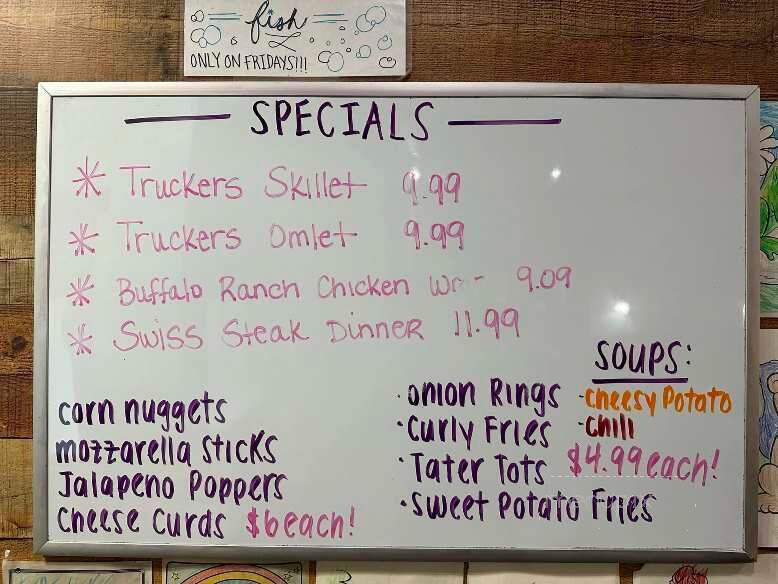 fish
ONLY ON FRIDAYS!!!
SPECIALS
* Truckers Skillet 9.99
* Truckers Omlet 9.99
* Buffalo Ranch Chicken 9.09
* Swiss Steak Dinner 11.99
corn nuggets
mozzarella sticks
Jalapeno Poppers
Cheese Curds $6 each!
· Onion Rings
· Curly Fries
· Tater Tots
· Sweet Potato Fries
SOUPS:
- Cheesy Potato
- Chili
$4.99 each!